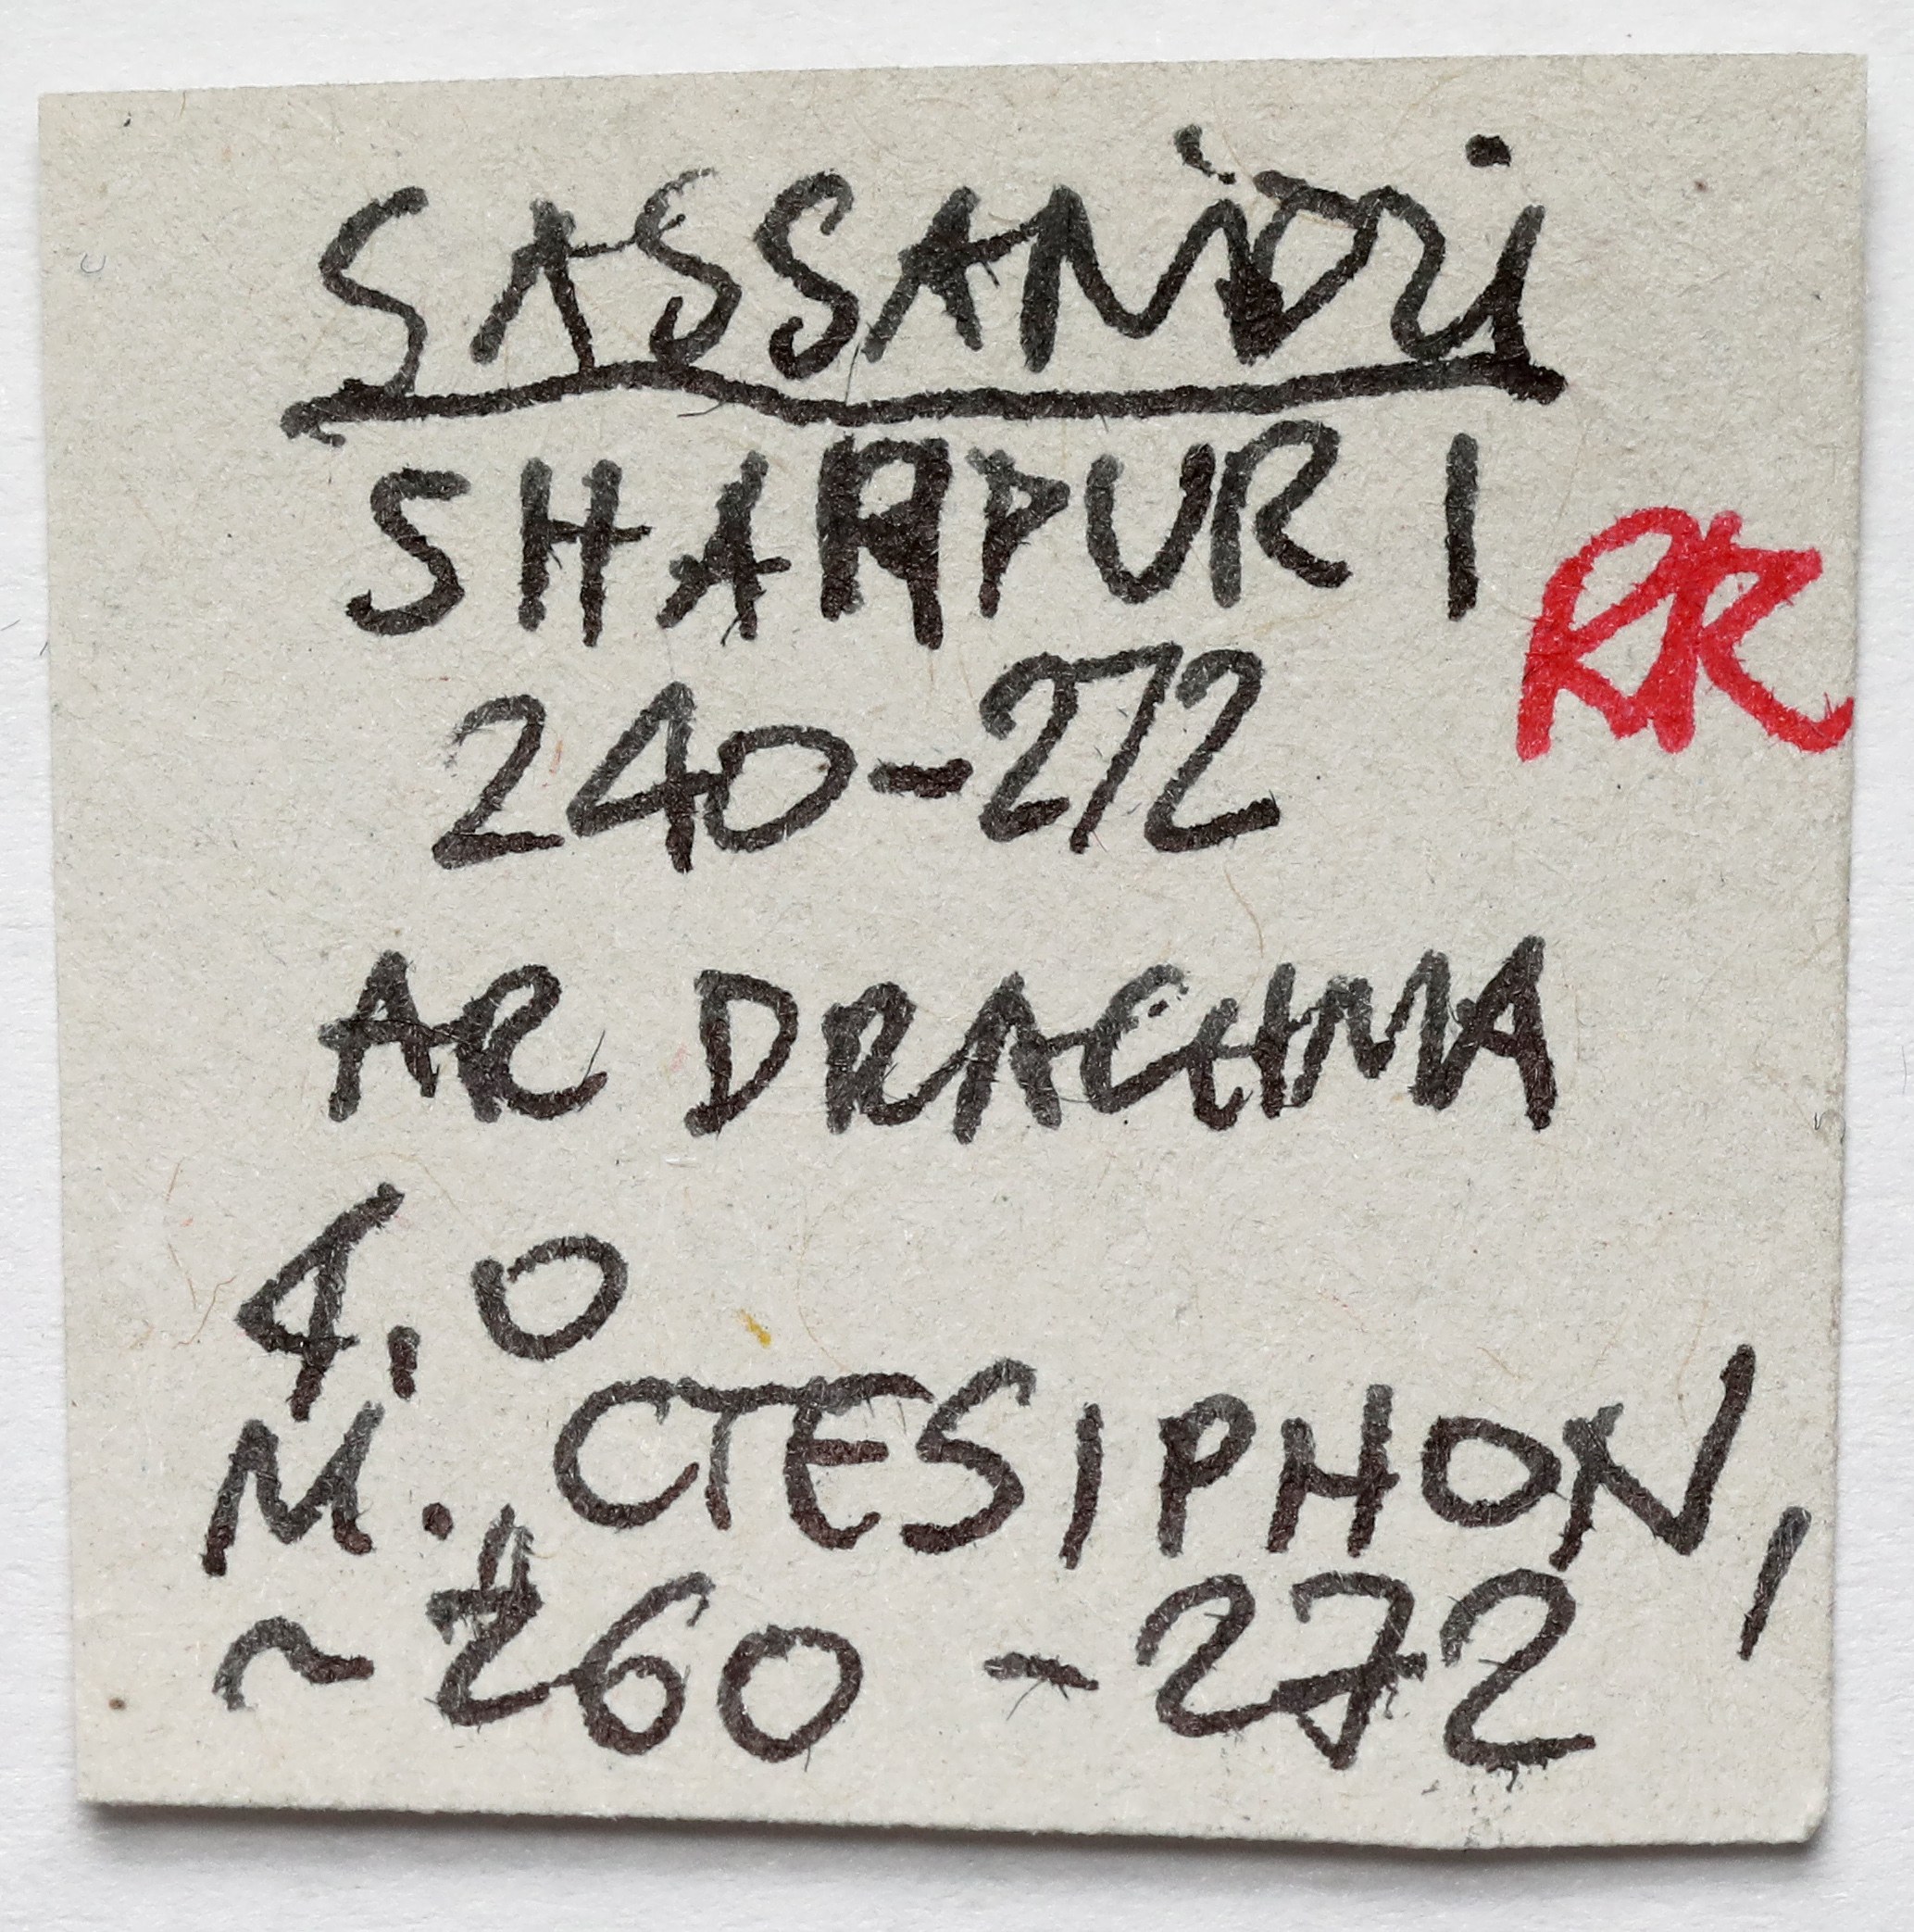 SASSANIDŮ
SHAHPUR I
RR
240-272
AR DRACHMA
4,0
M. CTESIPHON,
~ 260 - 272